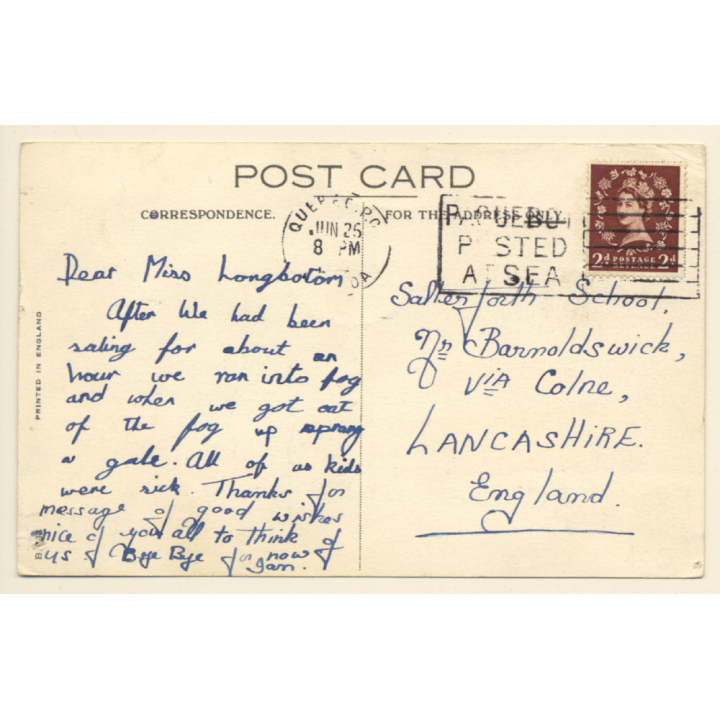 POST CARD
CORRESPONDENCE.
FOR THE ADDRESS ONLY.
QUEBEC. P.Q.
JUN 25
8 PM
PAQUEBOT
POSTED
AT SEA
2d POSTAGE 2d
REVENUE
Dear Miss Longbotom
After We had been
saling for about an
hour we ran into fog
and when we got out
of the fog up sprang
a gale. All of us kids
were sick. Thanks for
message of good wishes
nice of you all to think of
us Bye Bye for now
Salterforth School,
Nr Barnoldswick,
ViA Colne,
LANCASHIRE.
England.
PRINTED IN ENGLAND